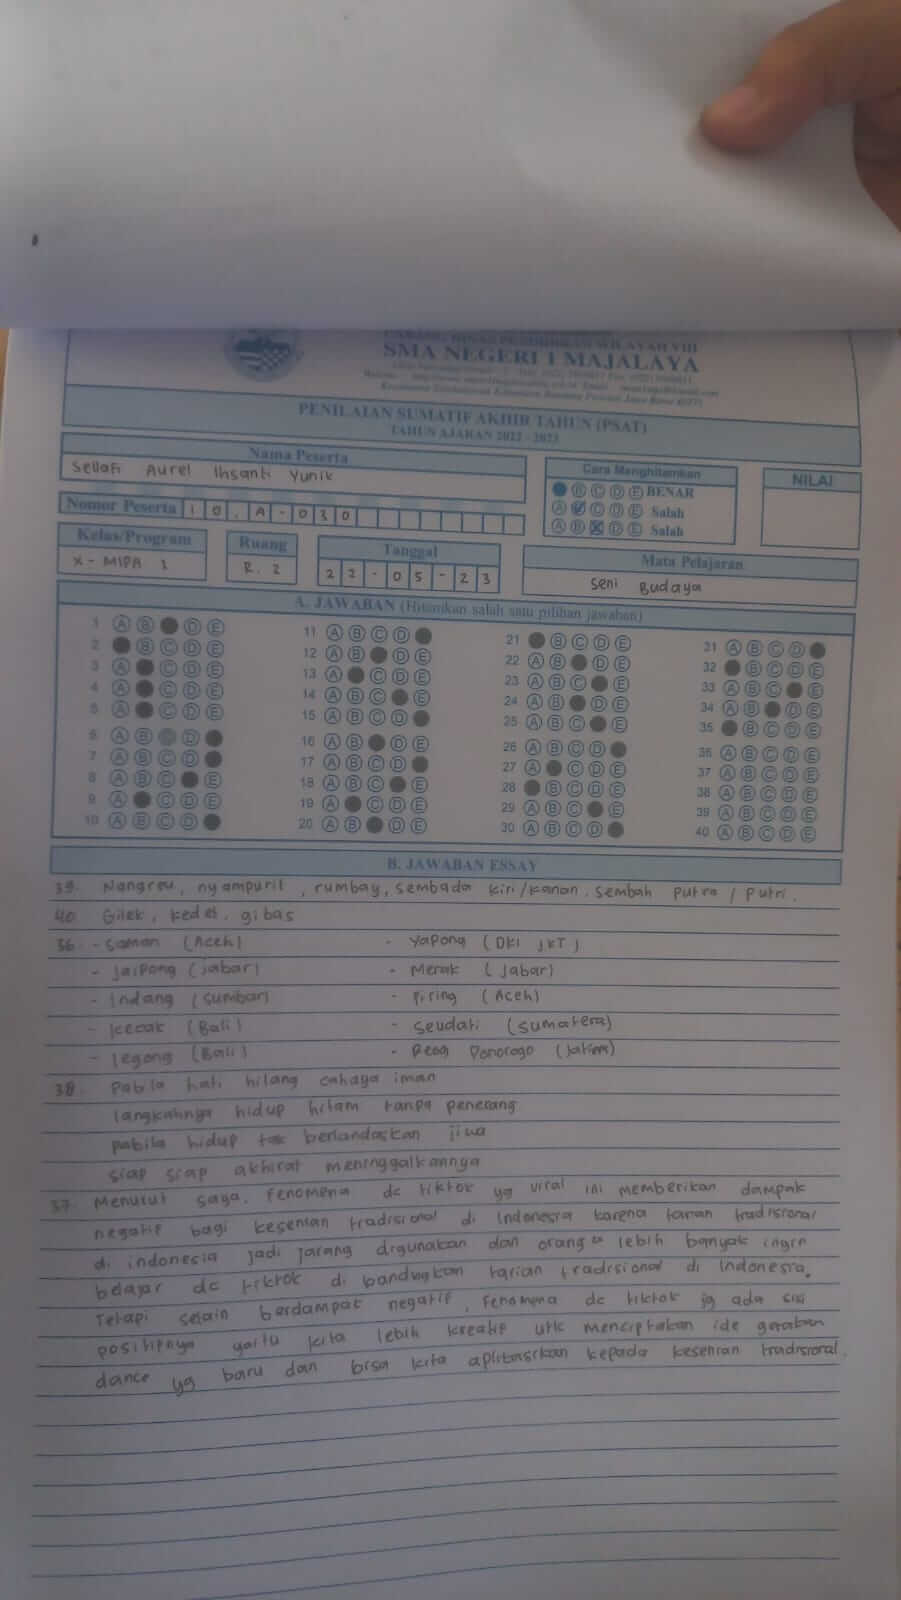 SMA NEGERI 1 MAJALAYA
PENILAIAN SUMATIF AKHIR TAHUN (PSAT)
TAHUN AJARAN 2022 - 2023
Nama Peserta
Sellafi Aurel Ihsanti Yunik
Nomor Peserta 10.A-030
Cara Menghitamkan
B C D E BENAR
A C D E Salah
A B D E Salah
NILAI
Kelas/Program
X - MIPA 1
Ruang
R. 2
Tanggal
22-05-23
Mata Pelajaran
Seni Budaya
A. JAWABAN (Hitamkan salah satu pilihan jawaban)
1 A B D E
2 B C D E
3 A C D E
4 A C D E
5 A C D E
6 A B C D
7 A B C D
8 A B C E
9 A C D E
10 A B C D
11 A B C D
12 A B D E
13 A C D E
14 A B C E
15 A B C D
16 A B D E
17 A B C D
18 A B C E
19 A C D E
20 A B D E
21 B C D E
22 A B D E
23 A B C E
24 A B D E
25 A B C E
26 A B C D
27 A C D E
28 B C D E
29 A B C E
30 A B C D
31 A B C D
32 B C D E
33 A B C E
34 A B D E
35 B C D E
36 A B C D E
37 A B C D E
38 A B C D E
39 A B C D E
40 A B C D E
B. JAWABAN ESSAY
39. Nangreu, nyampurit, rumbay, sembada kiri/kanan. sembah putra / putri.
40. Gilek, kedet, gibas
36. - Saman (Aceh) - Yapong (DKI JKT)
- Jaipong (Jabar) - Merak (Jabar)
- Indang (Sumbar) - Piring (Aceh)
- kecak (Bali) - Seudati (Sumatera)
- legong (Bali) - Reog Ponorogo (Jatim)
38. Pabila hati hilang cahaya iman
langkahnya hidup hitam tanpa penerang
pabila hidup tak berlandaskan jiwa
siap siap akhirat meninggalkannya
37. Menurut saya, fenomena dc tiktok yg viral ini memberikan dampak
negatif bagi kesenian tradisional di Indonesia karena tarian tradisional
di indonesia jadi jarang digunakan dan orang lebih banyak ingin
belajar dc tiktok di bandingkan tarian tradisional di Indonesia.
Tetapi selain berdampak negatif, fenomena dc tiktok jg ada sisi
positifnya yaitu kita lebih kreatif utk menciptakan ide gerakan
dance yg baru dan bisa kita aplikasikan kepada kesenian tradisional.